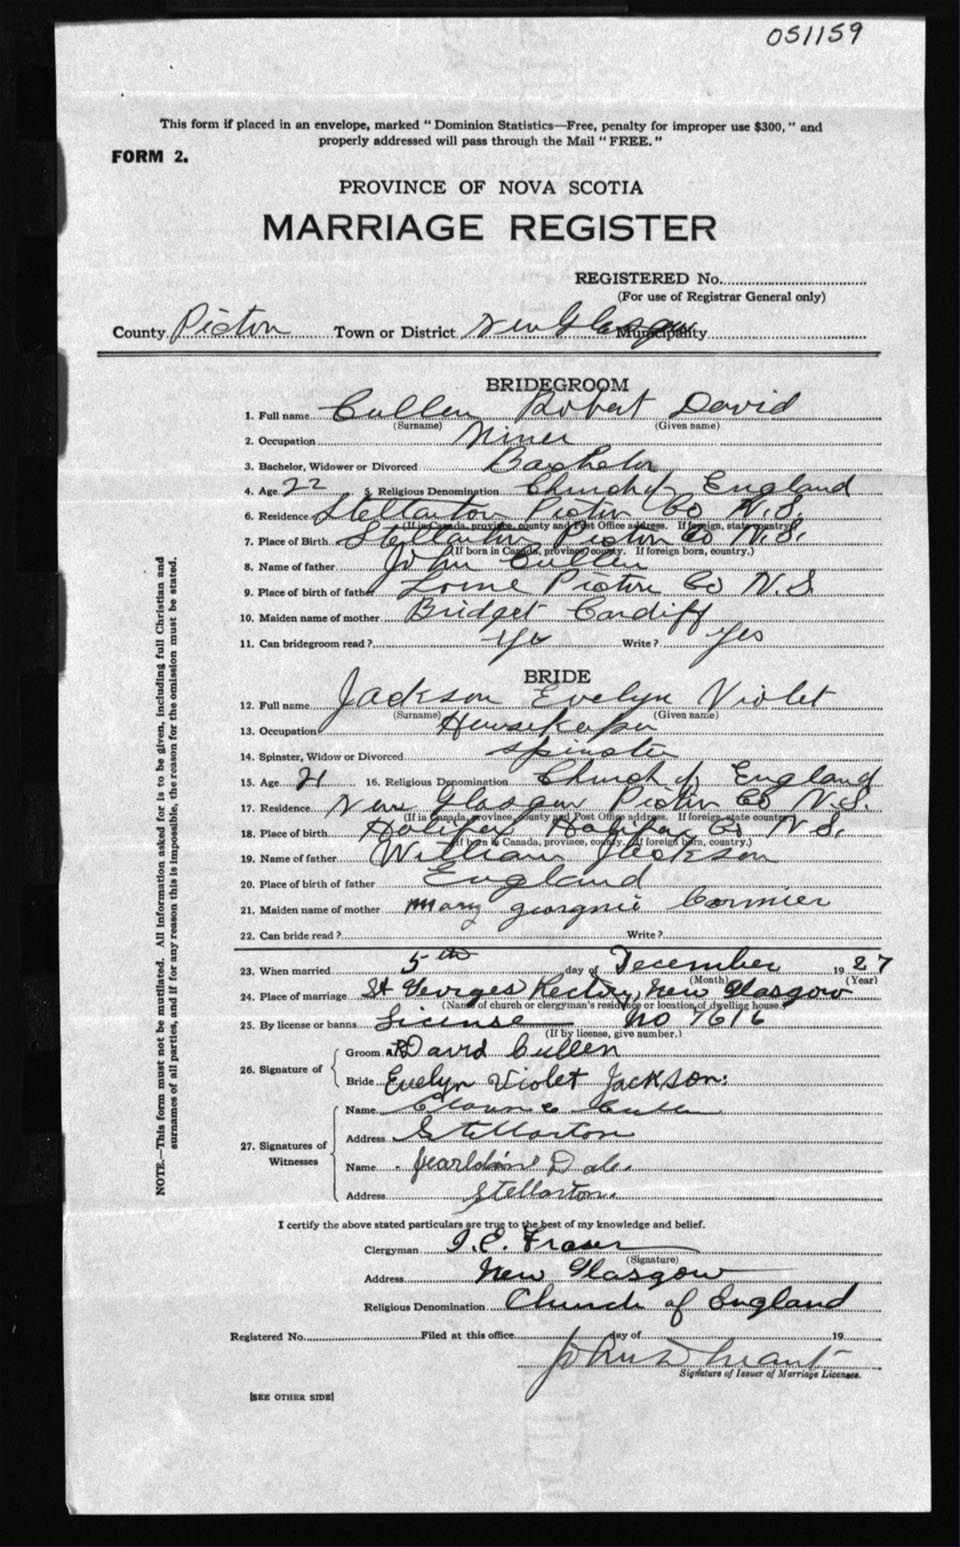 051159
This form if placed in an envelope, marked " Dominion Statistics—Free, penalty for improper use $300, " and
properly addressed will pass through the Mail " FREE. "
FORM 2.
PROVINCE OF NOVA SCOTIA
MARRIAGE REGISTER
REGISTERED No.
(For use of Registrar General only)
County Pictou Town or District New Glasgow Municipality
BRIDEGROOM
1. Full name Cullen Robert David
(Surname) (Given name)
2. Occupation Miner
3. Bachelor, Widower or Divorced Bachelor
4. Age 22 5. Religious Denomination Church of England
6. Residence Stellarton Pictou Co N.S.
(If in Canada, province, county and Post Office address. If foreign, state country)
7. Place of Birth Stellarton Pictou Co N.S.
(If born in Canada, province, county. If foreign born, country.)
8. Name of father John Cullen
9. Place of birth of father Lorne Pictou Co N.S
10. Maiden name of mother Bridget Cardiff
11. Can bridegroom read ? Yes Write ? Yes
BRIDE
12. Full name Jackson Evelyn Violet
(Surname) (Given name)
13. Occupation Housekeeper
14. Spinster, Widow or Divorced Spinster
15. Age 21 16. Religious Denomination Church of England
17. Residence New Glasgow Pictou Co N.S.
(If in Canada, province, county and Post Office address. If foreign state country)
18. Place of birth Halifax Halifax Co N.S.
(If born in Canada, province, county. If foreign born, country.)
19. Name of father William Jackson
20. Place of birth of father England
21. Maiden name of mother Mary Cormier
22. Can bride read ? Write ?
23. When married 5th day of December 1927
(Month) (Year)
24. Place of marriage St Georges Rectory, New Glasgow
(Name of church or clergyman's residence or location of dwelling house.)
25. By license or banns License No 7616
(If by license, give number.)
26. Signature of
Groom R David Cullen
Bride Evelyn Violet Jackson.
27. Signatures of Witnesses
Name Cullen
Address Stellarton
Name Dale
Address Stellarton.
I certify the above stated particulars are true to the best of my knowledge and belief.
Clergyman I. E. Fraser
(Signature)
Address New Glasgow
Religious Denomination Church of England
Registered No. Filed at this office day of 19
John Grant
Signature of Issuer of Marriage Licenses.
[SEE OTHER SIDE]
NOTE.—This form must not be mutilated. All information asked for is to be given, including full Christian and
surnames of all parties, and if for any reason this is impossible, the reason for the omission must be stated.